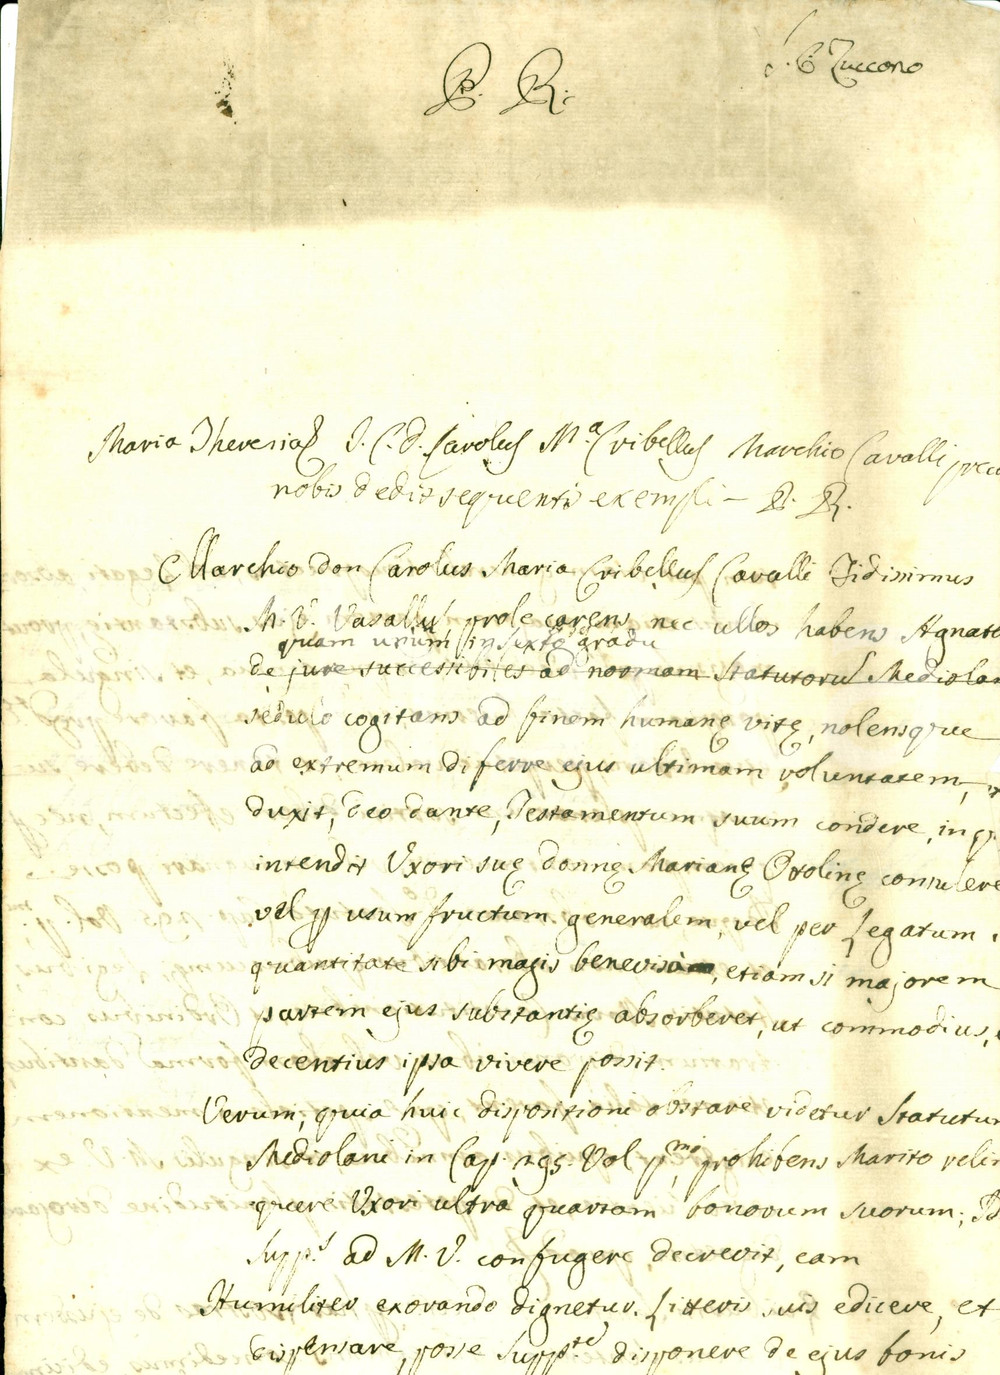 P. R.
Zuccono
Maria Theresia &c. I. C. d. Carolus M.ª Cribellus Marchio Cavalli preces
nobis dedit sequentis exempli – P. R.
Marchio don Carolus Maria Cribellus Cavalli Fidissimus
M. V. Vasallus prole carens, nec ullos habens Agnatos
quam unum in sexto gradu
de jure successibiles ad normam Statutorum Mediolani
sedulo cogitans ad finem humanę vitę, nolensque
ad extremum diferre ejus ultimam voluntatem,
duxit, deo dante, Testamentum suum condere, in quo
intendit Uxori suę donnę Marianę consulere
vel p usum fructum generalem, vel per Legatum
quantitate sibi magis benevisa, etiam si majorem
partem ejus substantię absorberet, ut commodius, et
decentius ipsa vivere possit.
Verum, quia huic dispositioni obstare videtur Statutum
Mediolani in Cap. 295. Vol p.mi, prohibens Marito relin
quere Uxori ultra quartam bonorum suorum;
Supp.s ad M. V. confugere decrevit, eam
Humiliter exorando dignetur Litteris suis edicere, et
dispensare, posse Supp.te disponere de ejus bonis